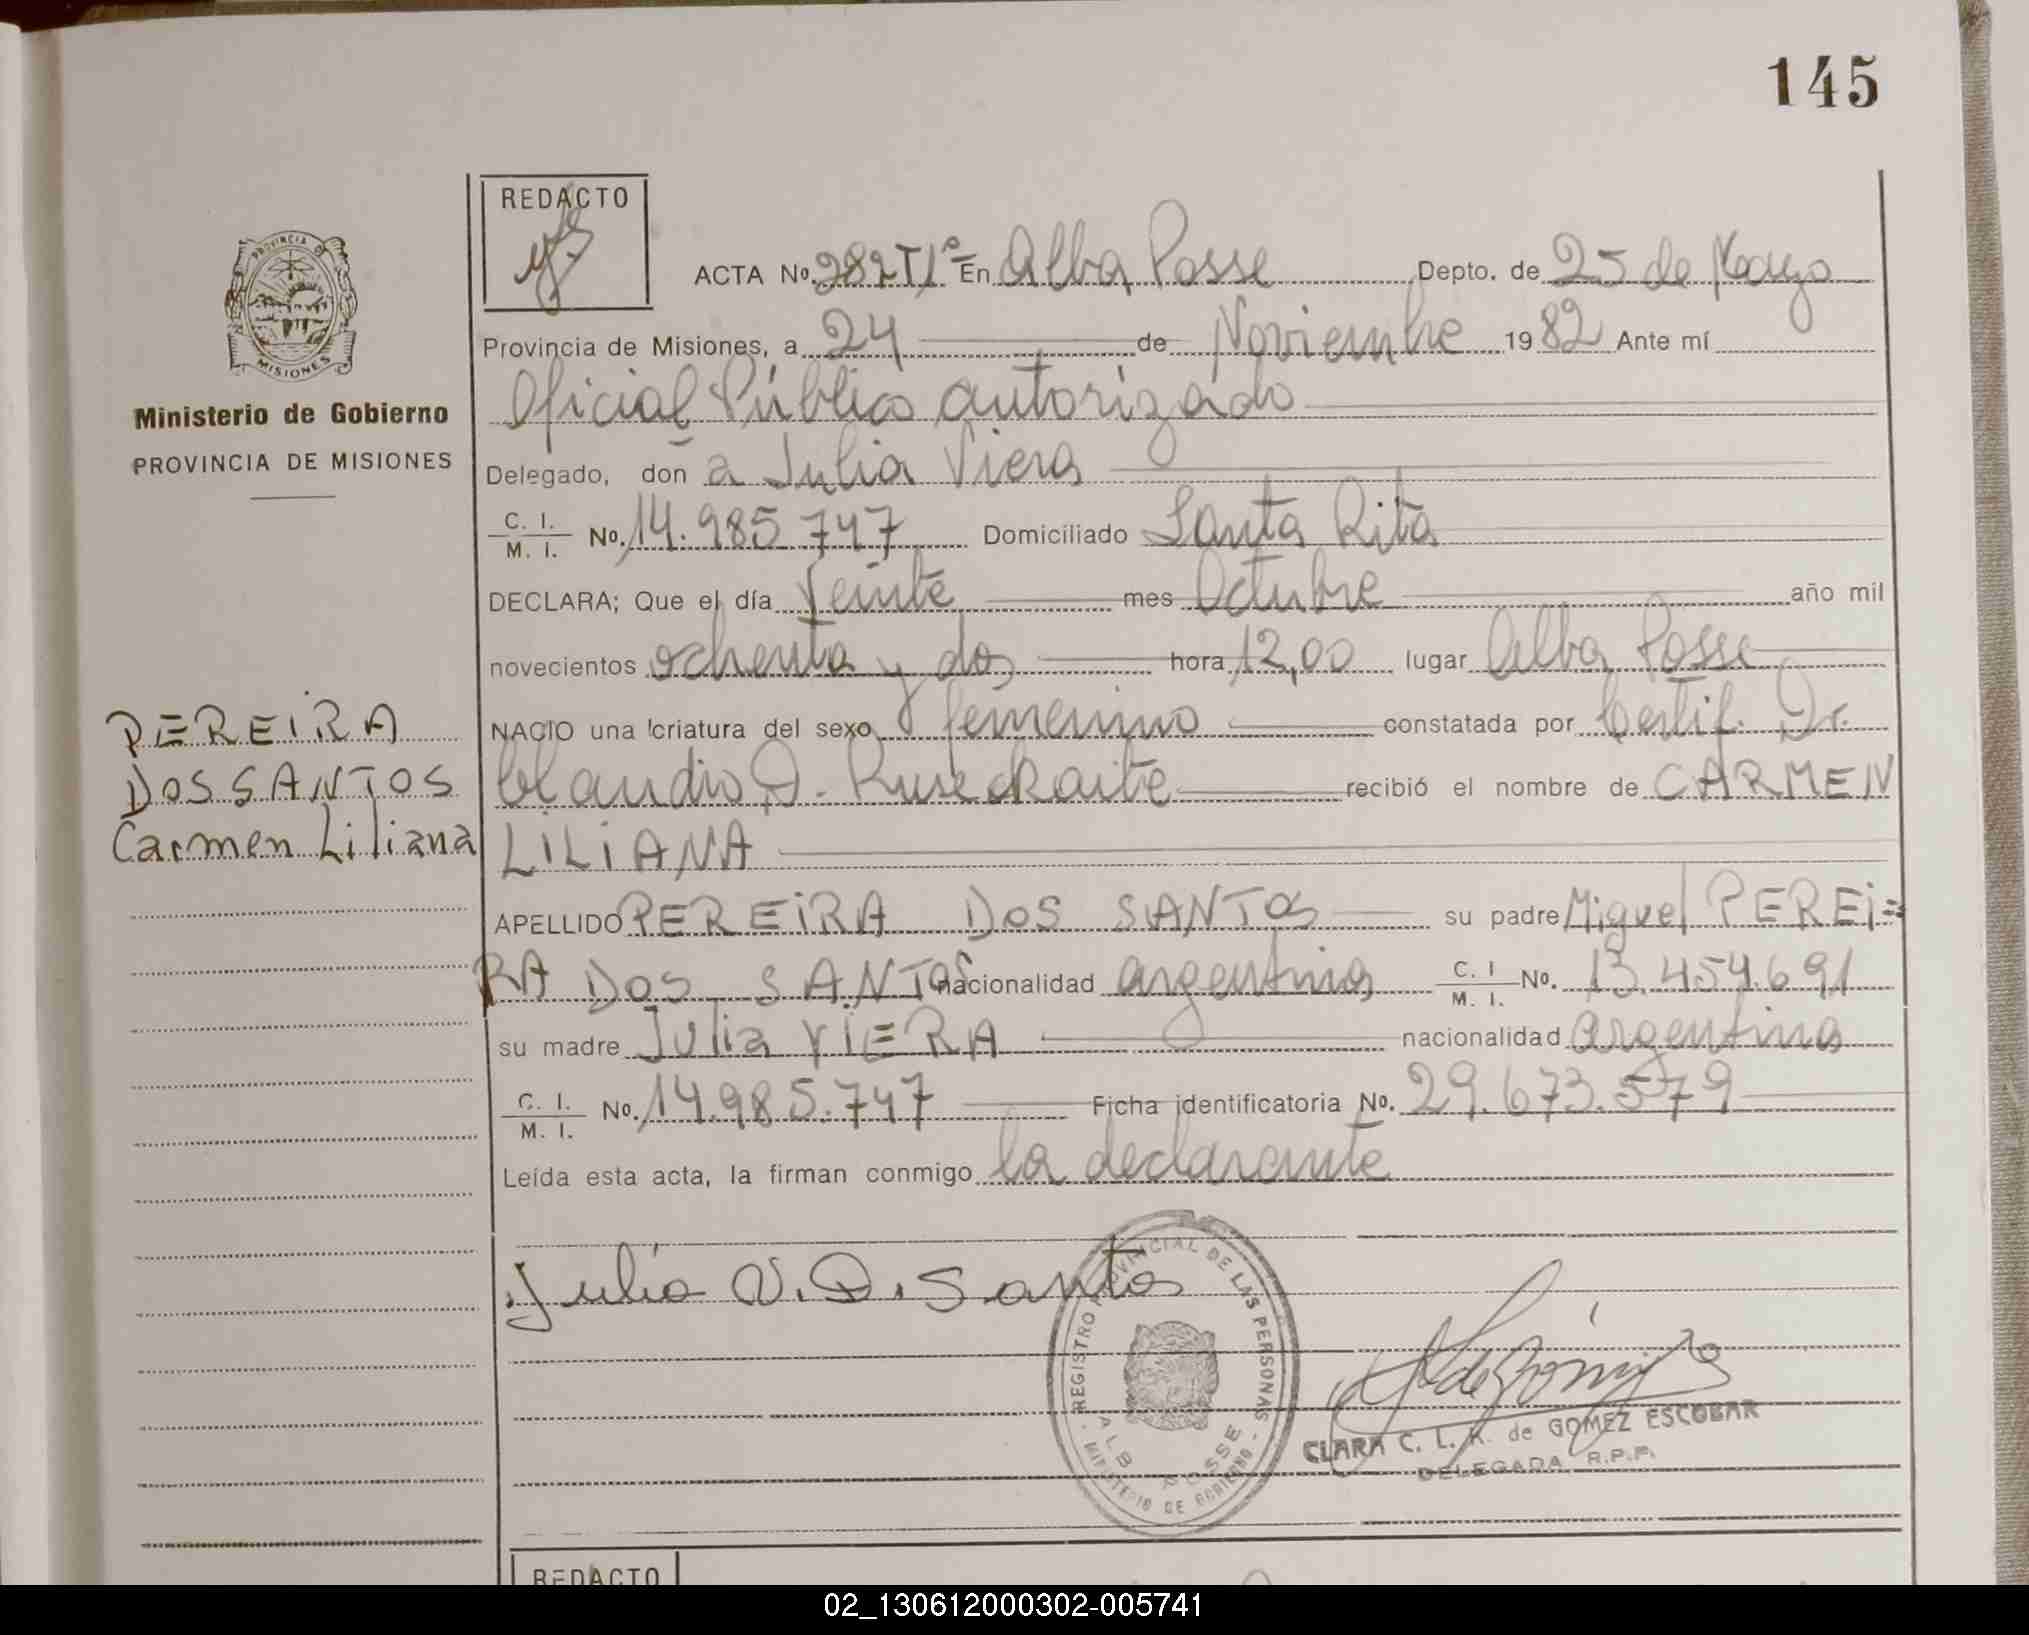 145
REDACTO
ACTA No. 282 TIº En Alba Posse Depto. de 25 de Mayo
Provincia de Misiones, a 24 de Noviembre 1982 Ante mí
Oficial Público autorizado
Delegado, don a Julia Viera
C. I. / M. I. No. 14.985.747 Domiciliado Santa Rita
DECLARA; Que el día Veinte mes Octubre año mil
novecientos ochenta y dos hora 12,00 lugar Alba Posse
NACIO una criatura del sexo femenino constatada por Certif. Dr.
Claudio D. recibió el nombre de CARMEN
LILIANA
APELLIDO PEREIRA DOS SANTOS su padre Miguel PEREI=
RA DOS SANTOS nacionalidad argentina C. I / M. I. No. 13.454.691
su madre Julia VIERA nacionalidad argentina
C. I. / M. I. No. 14.985.747 Ficha identificatoria No. 29.673.579
Leída esta acta, la firman conmigo la declarante
Julia V. D. Santos
REGISTRO PROVINCIAL DE LAS PERSONAS
ALBA POSSE
MINISTERIO DE GOBIERNO
CLARA C. L. K. de GOMEZ ESCOBAR
DELEGADA R.P.P.
PROVINCIA DE
MISIONES
Ministerio de Gobierno
PROVINCIA DE MISIONES
PEREIRA
DOS SANTOS
Carmen Liliana
REDACTO
02_130612000302-005741